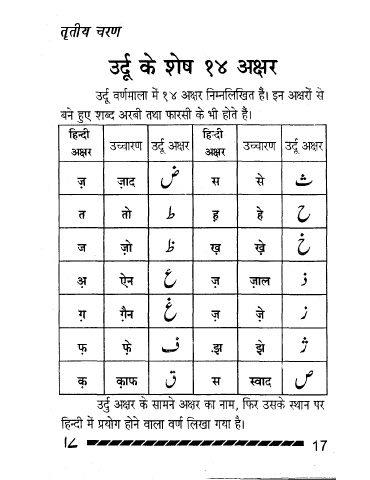 तृतीय चरण
उर्दू के शेष १४ अक्षर
उर्दू वर्णमाला में १४ अक्षर निम्नलिखित हैं। इन अक्षरों से
बने हुए शब्द अरबी तथा फारसी के भी होते हैं।
हिन्दी अक्षर उच्चारण उर्दू अक्षर हिन्दी अक्षर उच्चारण उर्दू अक्षर
ज़ ज़ाद ض स से ث
त तो ط ह हे ح
ज ज़ो ظ ख़ ख़े خ
अ़ ऐन ع ज़ ज़ाल ذ
ग़ ग़ैन غ ज़ ज़े ز
फ़ फ़े ف झ़ झे ژ
क़ क़ाफ ق स स्वाद ص
उर्दु अक्षर के सामने अक्षर का नाम, फिर उसके स्थान पर
हिन्दी में प्रयोग होने वाला वर्ण लिखा गया है।
۱۷ 17